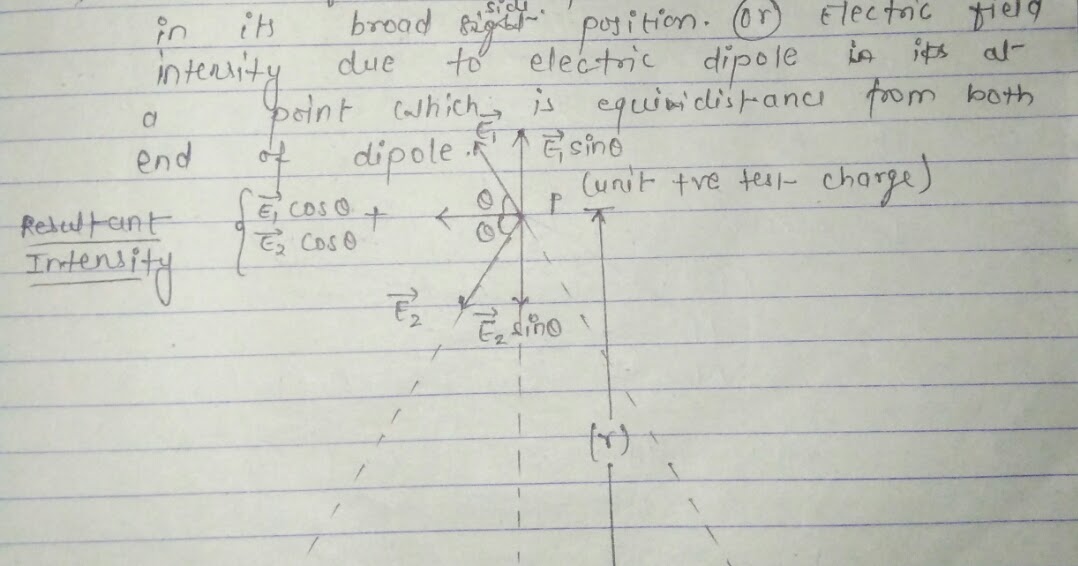 in its broad side position. (or) Electric field
intensity due to electric dipole in its at
a point which is equividistance from both
end of dipole.
E₁→ E₁→ sinθ
(unit +ve test charge)
Resultant Intensity { E₁→ cosθ + E₂→ cosθ
θ P
θ
E₂→
E₂→ sinθ
(r)